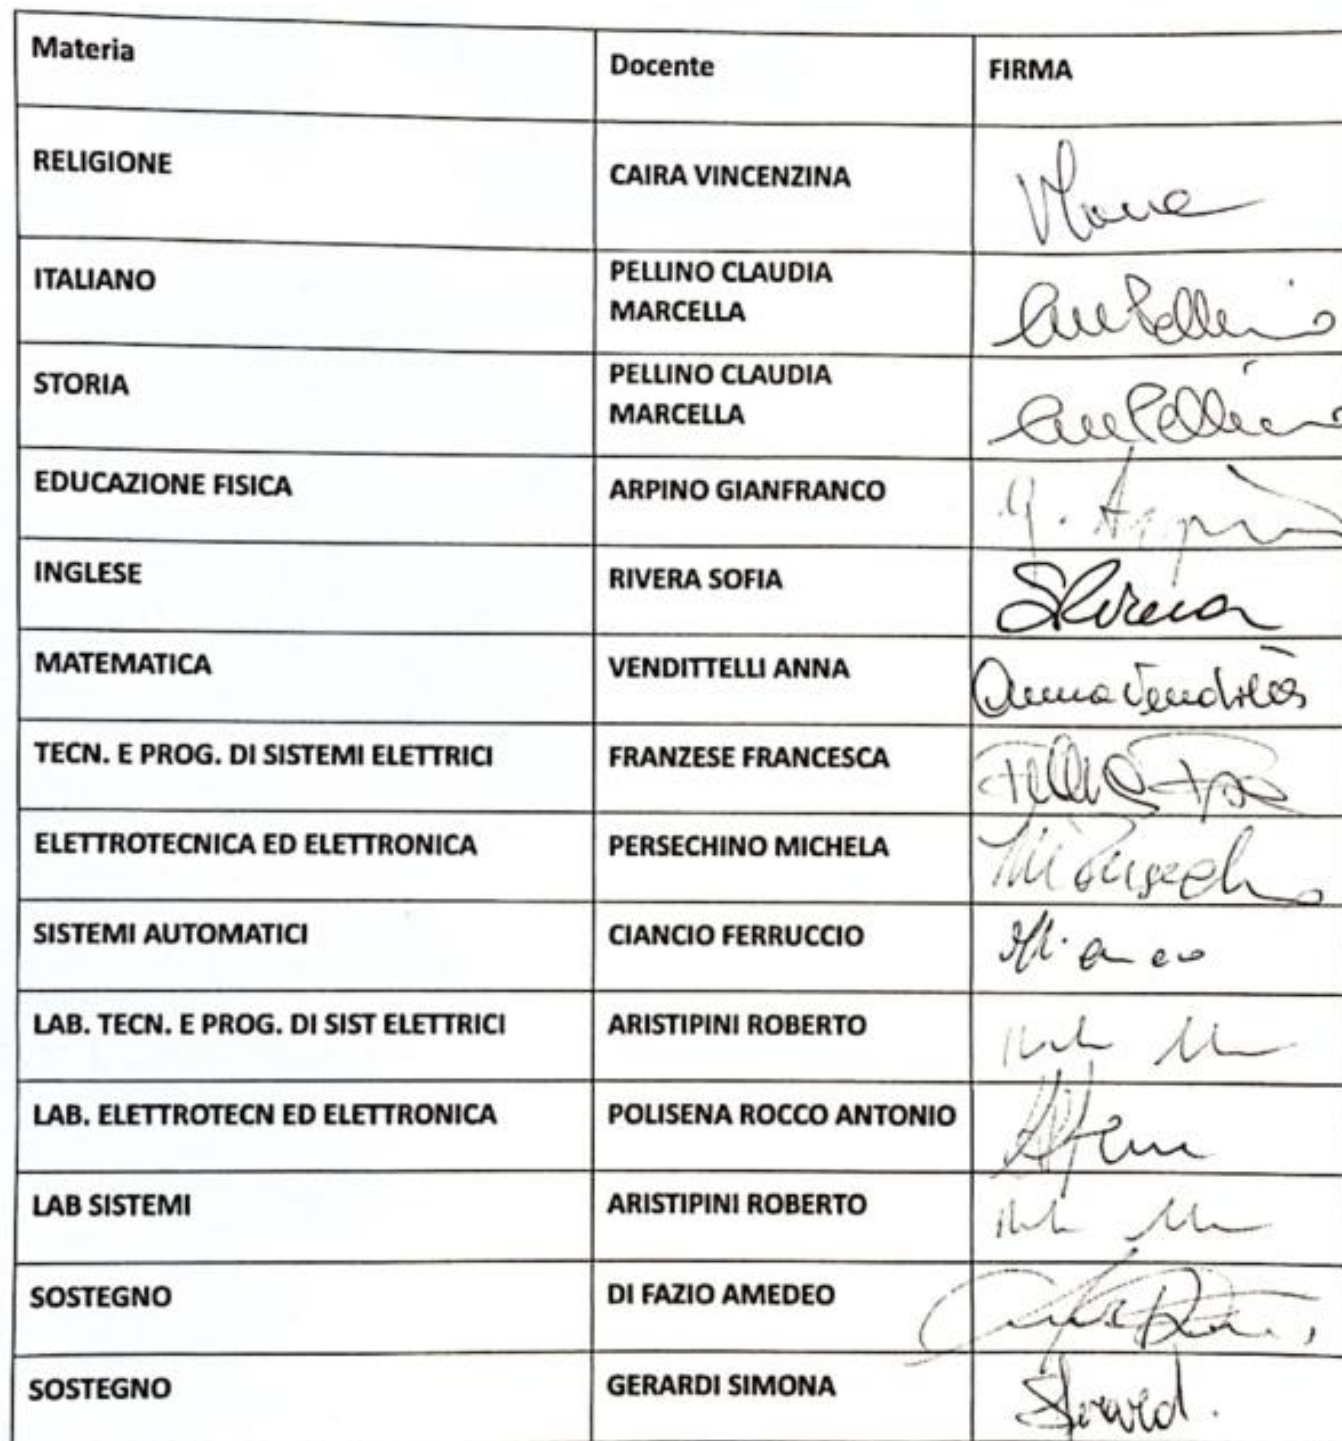 Materia Docente FIRMA
RELIGIONE CAIRA VINCENZINA
ITALIANO PELLINO CLAUDIA
MARCELLA
STORIA PELLINO CLAUDIA
MARCELLA
EDUCAZIONE FISICA ARPINO GIANFRANCO
INGLESE RIVERA SOFIA
MATEMATICA VENDITTELLI ANNA
TECN. E PROG. DI SISTEMI ELETTRICI FRANZESE FRANCESCA
ELETTROTECNICA ED ELETTRONICA PERSECHINO MICHELA
SISTEMI AUTOMATICI CIANCIO FERRUCCIO
LAB. TECN. E PROG. DI SIST ELETTRICI ARISTIPINI ROBERTO
LAB. ELETTROTECN ED ELETTRONICA POLISENA ROCCO ANTONIO
LAB SISTEMI ARISTIPINI ROBERTO
SOSTEGNO DI FAZIO AMEDEO
SOSTEGNO GERARDI SIMONA